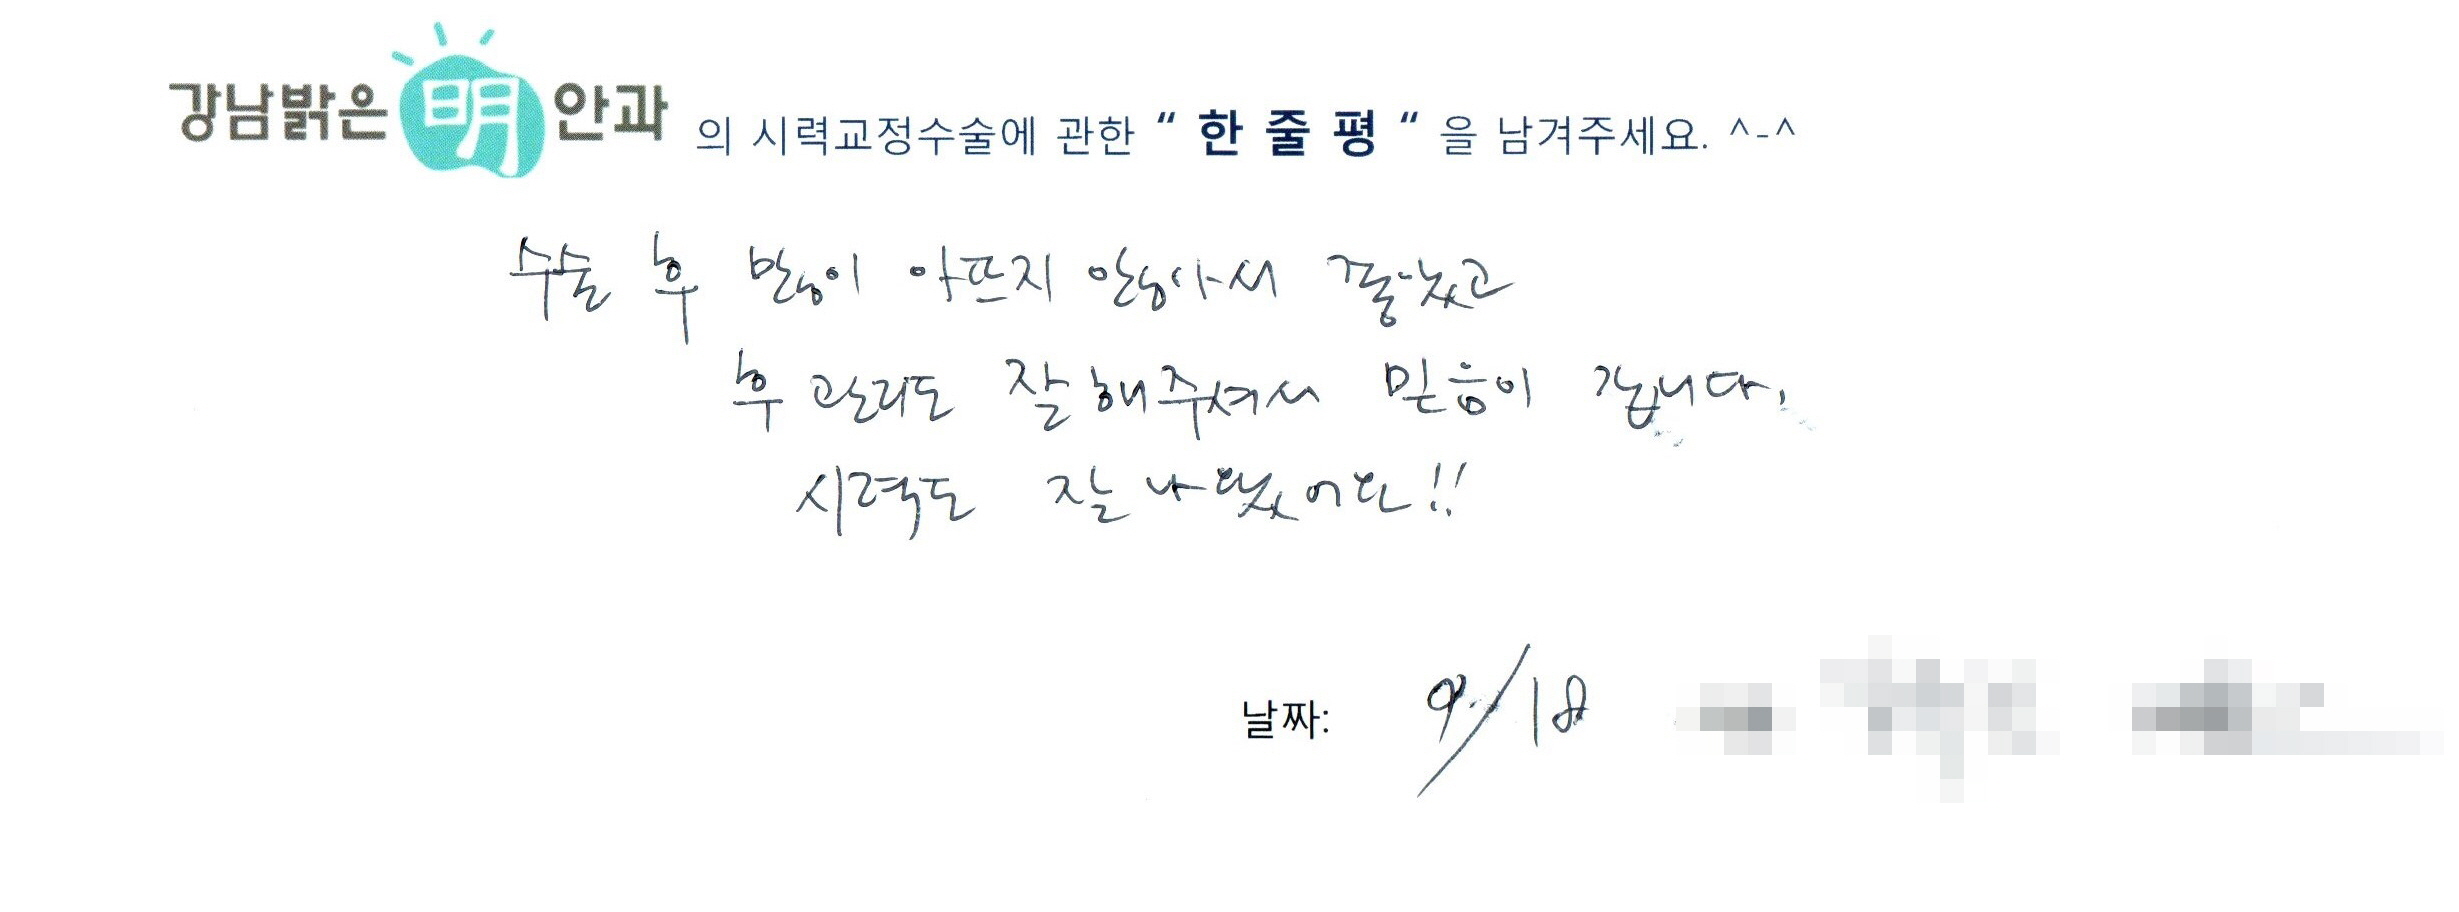 강남밝은 明 안과 의 시력교정수술에 관한 “ 한 줄 평 “ 을 남겨주세요. ^-^
수술 후 많이 아프지 않아서 좋았고
후 관리도 잘해주셔서 믿음이 갑니다.
시력도 잘 나왔어요!!
날짜: 9/18